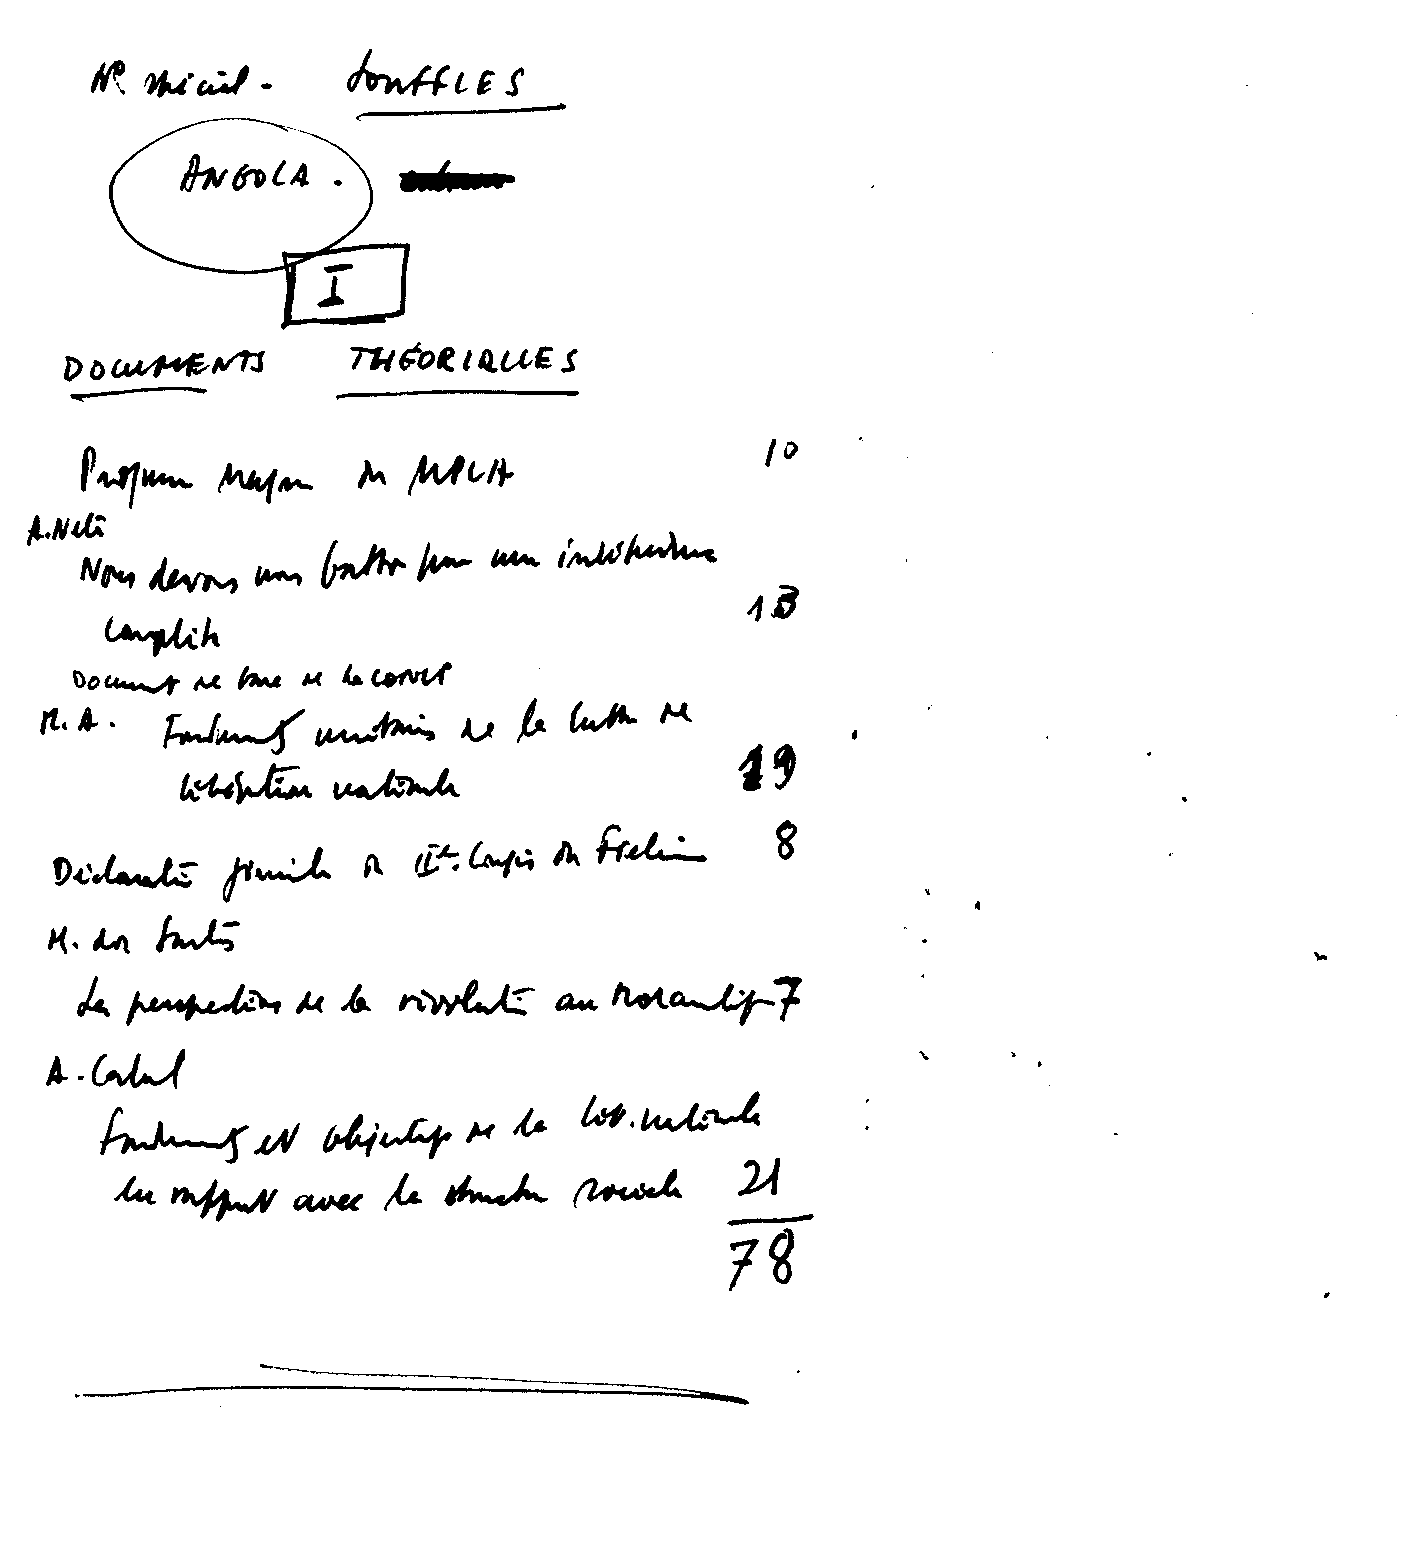 No spécial - SOUFFLES
ANGOLA.
I
DOCUMENTS THÉORIQUES
Programme Majeur du MPLA 10
A. Neto
Nous devons nous battre pour une indépendance
complète 13
Document de base de la CONCP
M. A. Fondements unitaires de la lutte de
libération nationale 19
Déclaration finale du IIe. Congrès du Frelimo 8
M. dos Santos
Les perspectives de la révolution au Mozambique 7
A. Cabral
Fondements et objectifs de la lib. nationale
en rapport avec la structure sociale 21
78